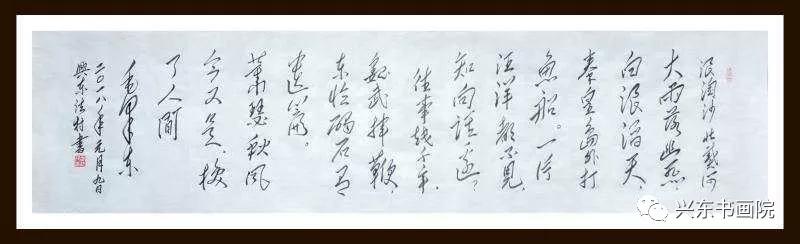 浪淘沙北戴河
大雨落幽燕,
白浪滔天,
秦皇岛外打
鱼船。一片
汪洋都不见,
知向谁边。
往事越千年,
魏武挥鞭,
东临碣石有
遗篇。
萧瑟秋风
今又是,换
了人间
毛泽东
二〇一八年元月九日
興东書
兴东书画院